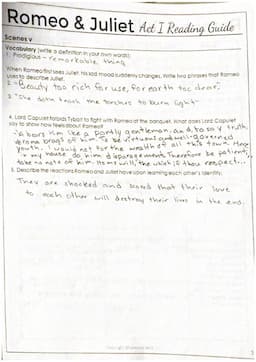 Romeo & Juliet Act I Reading Guide
Scenes v
Vocabulary (write a definition in your own words):
1. Prodigious - remarkable thing
When Romeo first sees Juliet, his sad mood suddenly changes. Write two phrases that Romeo
uses to describe Juliet.
2. "Beauty too rich for use, for earth too dear."
3. "She doth teach the torches to burn bright"
4. Lord Capulet forbids Tybalt to fight with Romeo at the banquet. What does Lord Capulet
say to show how he feels about Romeo?
him like a portly gentleman, and, to say truth,
Verona brags of him To be virtuous and well-governed
youth. I would not for the wealth of all this town Here
in my house do him disparagement. Therefore be patient,
take no note of him. It is my will, the which if thou respect...
5. Describe the reactions Romeo and Juliet have upon learning each other's identity.
They are shocked and scared that their love
to each other will destroy their lives in the end.